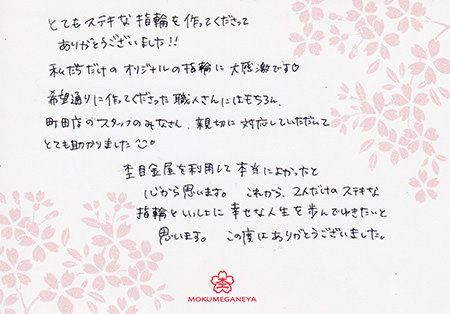 とてもステキな指輪を作ってくださって
ありがとうございました!!
私たちだけのオリジナルの指輪に大感激です♡
希望通りに作ってくださった職人さんにはもちろん、
町田店のスタッフのみなさん、親切に対応していただいて
とても助かりました
杢目金屋を利用して本当によかったと
心から思います。これから、2人だけのステキな
指輪といっしょに幸せな人生を歩んでゆきたいと
思います。この度はありがとうございました。
杢
MOKUMEGANEYA